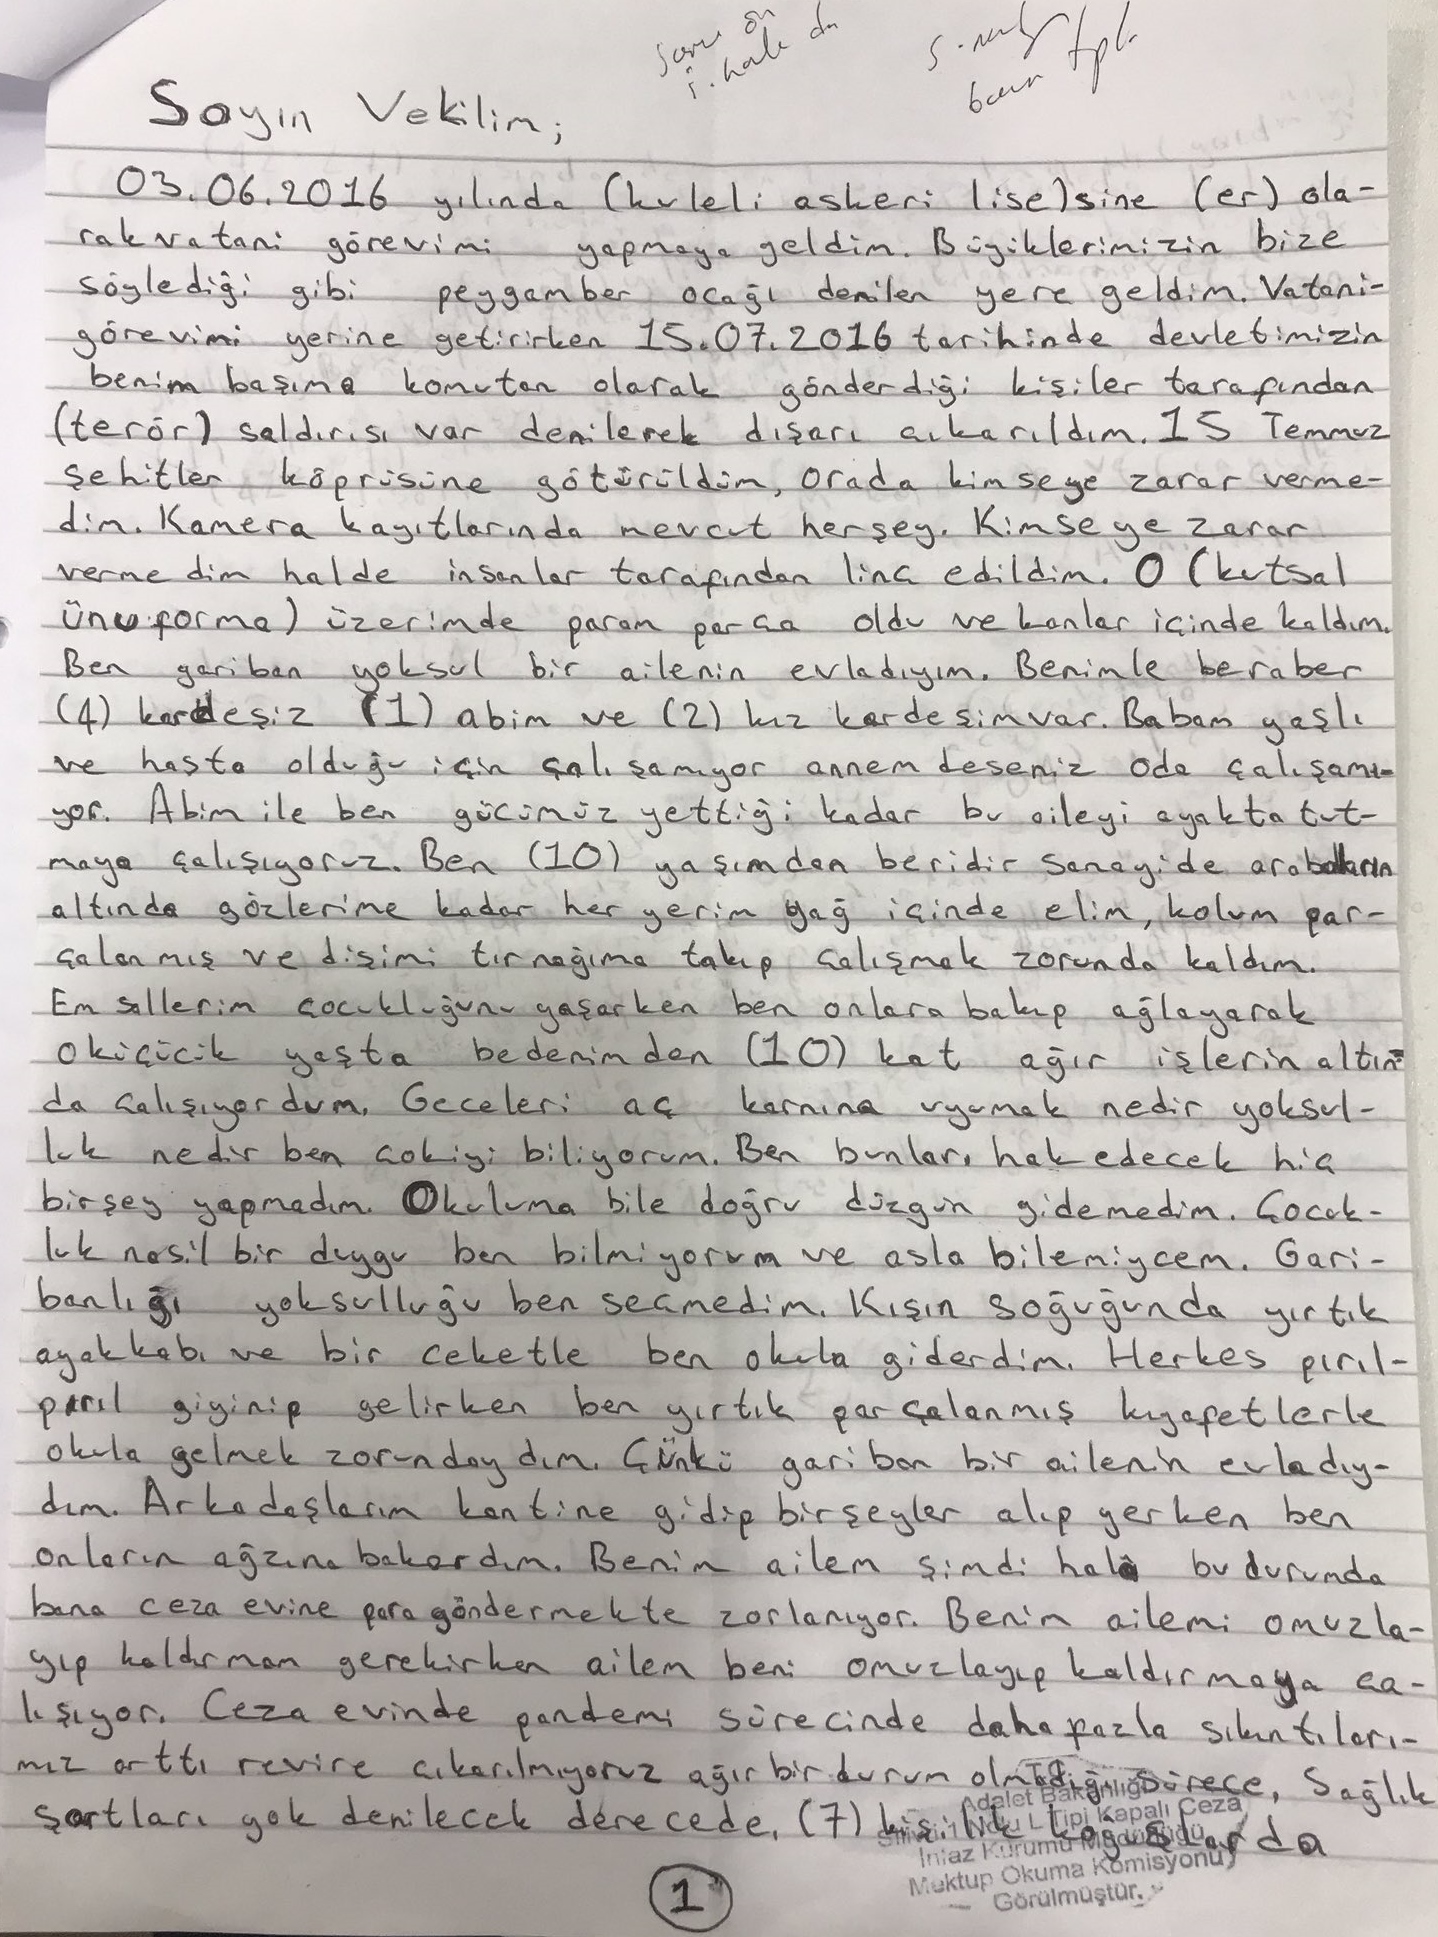 Sayın Vekilim;
03.06.2016 yılında (kuleli askeri lise)sine (er) ola-
rak vatani görevimi yapmaya geldim. Büyüklerimizin bize
söylediği gibi peygamber ocağı denilen yere geldim. Vatani-
görevimi yerine getirirken 15.07.2016 tarihinde devletimizin
benim başıma komutan olarak gönderdiği kişiler tarafından
(terör) saldırısı var denilerek dışarı çıkarıldım. 15 Temmuz
şehitler köprüsüne götürüldüm, orada kimseye zarar verme-
dim. Kamera kayıtlarında mevcut herşey. Kimseye zarar
vermedim halde insanlar tarafından linç edildim. O (kutsal
ünuforma) üzerimde param parça oldu ve kanlar içinde kaldım.
Ben gariban yoksul bir ailenin evladıyım. Benimle beraber
(4) kardeşiz (1) abim ve (2) kız kardeşim var. Babam yaşlı
ve hasta olduğu için çalışamıyor annem deseniz oda çalışamı-
yor. Abim ile ben gücümüz yettiği kadar bu aileyi ayakta tut-
maya çalışıyoruz. Ben (10) yaşımdan beridir sanayide arabaların
altında gözlerime kadar her yerim yağ içinde elim, kolum par-
çalanmış ve dişimi tırnağıma takıp çalışmak zorunda kaldım.
Emsallerim çocukluğunu yaşarken ben onlara bakıp ağlayarak
oküçücük yaşta bedenimden (10) kat ağır işlerin altın-
da çalışıyordum. Geceleri aç karnına uyumak nedir yoksul-
luk nedir ben çokiyi biliyorum. Ben bunları hak edecek hiç
birşey yapmadım. Okuluma bile doğru düzgün gidemedim. Çocuk-
luk nasıl bir duygu ben bilmiyorum ve asla bilemiycem. Gari-
banlığı yoksulluğu ben seçmedim. Kışın soğuğunda yırtık
ayakkabı ve bir ceketle ben okula giderdim. Herkes pırıl-
pırıl giyinip gelirken ben yırtık parçalanmış kıyafetlerle
okula gelmek zorundaydım. Çünkü gariban bir ailenin evladıy-
dım. Arkadaşlarım kantine gidip birşeyler alıp yerken ben
onların ağzına bakardım. Benim ailem şimdi hala bu durumda
bana ceza evine para göndermekte zorlanıyor. Benim ailemi omuzla-
yıp kaldırmam gerekirken ailem beni omuzlayıp kaldırmaya ça-
lışıyor. Ceza evinde pandemi sürecinde daha fazla sıkıntıları-
mız arttı revire çıkarılmıyoruz ağır bir durum olmadığı sürece, Sağlık
şartları yok denilecek derecede, (7) kişilik koğuşlarda
T.C.
Adalet Bakanlığı
Silivri 1 Nolu L Tipi Kapalı Ceza
İnfaz Kurumu Müdürlüğü
Mektup Okuma Komisyonu
Görülmüştür.
1